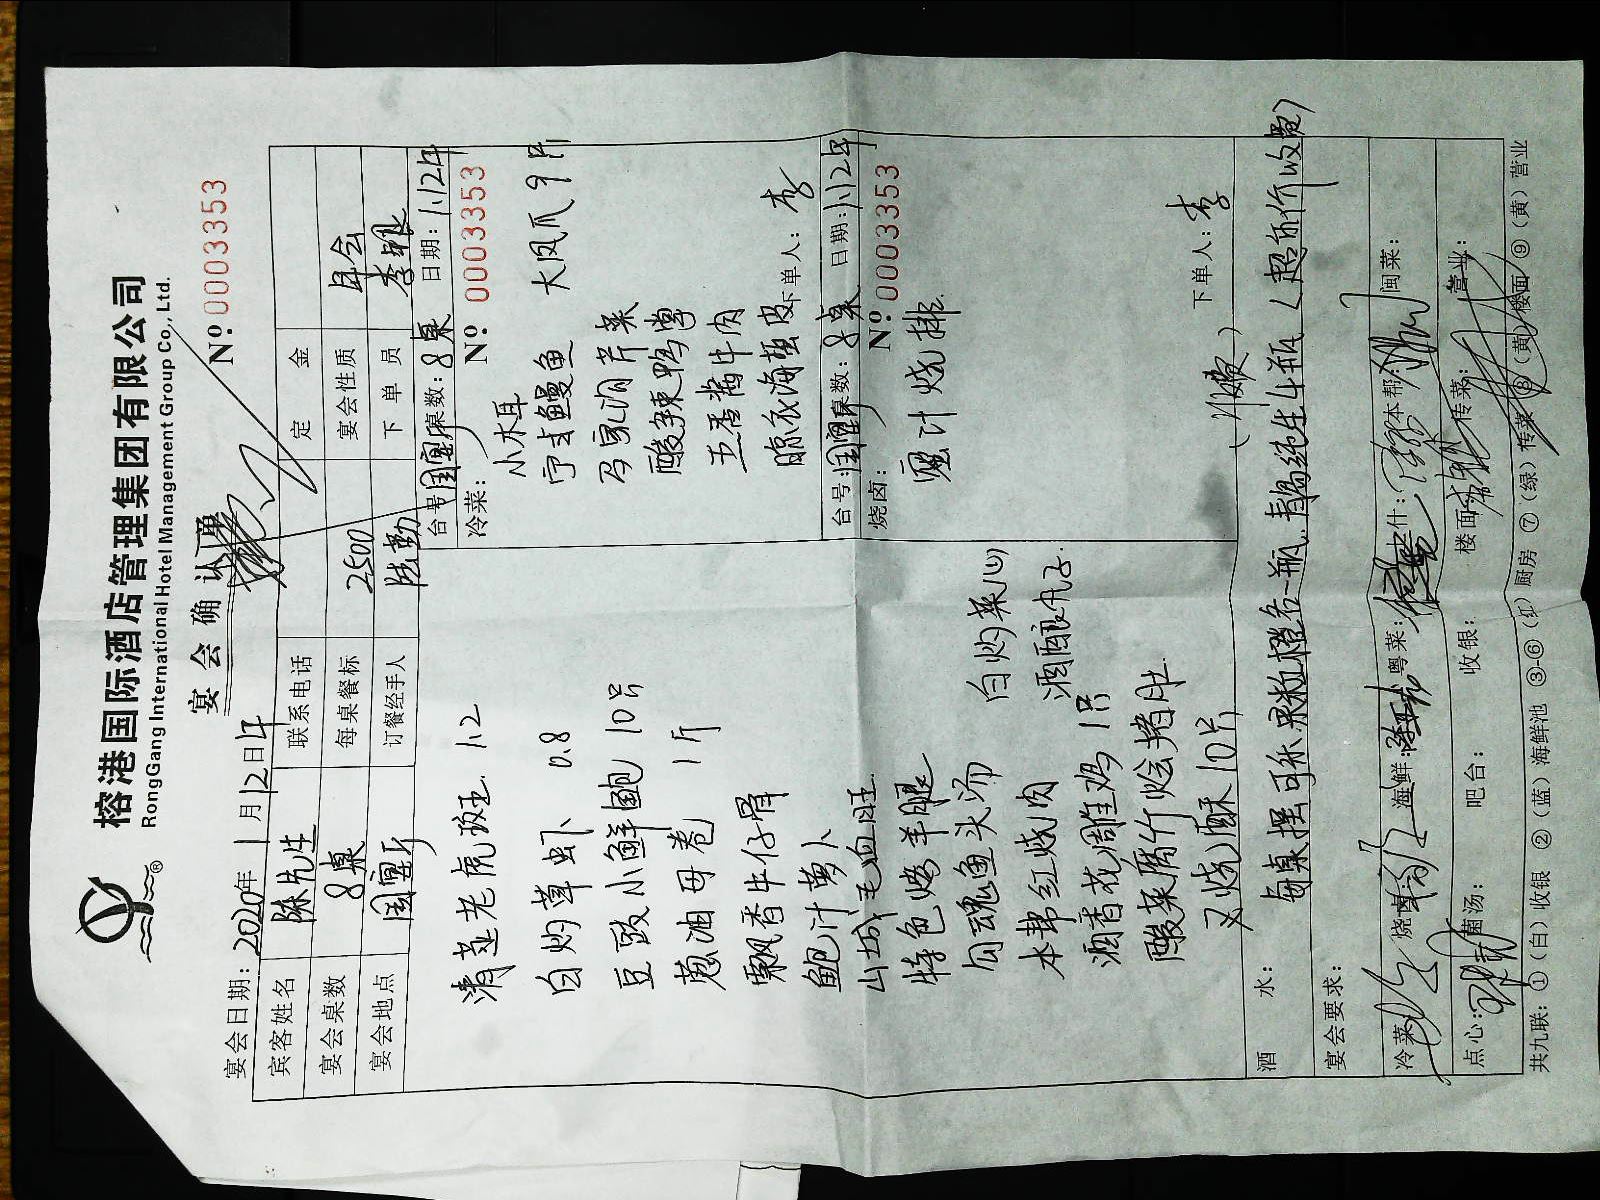 榕港国际酒店管理集团有限公司
RongGang International Hotel Management Group Co., Ltd.
®
宴会确认单
Nº:0003353
宴会日期:2020年1月12日午
宾客姓名 陈先生 联系电话 定金
宴会桌数 8桌 每桌餐标 2500 宴会性质 年会
宴会地点 国宴厅 订餐经手人 陆勤 下单员 李银
清蒸老虎斑 1.2
白灼草虾 0.8
豆豉小鲜鲍 10只
葱油母卷 1斤
飘香牛仔骨
鲍汁萝卜
山城毛血旺
特色烤羊腿
勾魂鱼头汤
本帮红烧肉
酒香花雕鸡 1只
酸菜腐竹烩猪肚
叉烧酥10片
白灼菜心
酒酿丸子
台号:国宴厅 桌数:8桌 日期:1.12午
冷菜: Nº 0003353
小木耳 大凤爪9只
鳗鱼
芹菜
酸辣鸭掌
五香酱牛肉
海蜇皮
下单人:李
台号:国宴厅 桌数:8桌 日期:1.12午
烧卤: Nº:0003353
蜜汁烧排
下单人:李
酒水: 每桌摆可乐果粒橙各一瓶 青岛纯生4瓶(超价收费)
宴会要求:
冷菜: 烧卤: 海鲜: 粤菜: 上什: 本帮: 闽菜:
点心: 菌汤: 吧台: 收银: 楼面: 传菜: 营业:
共九联:①(白)收银 ②(蓝)海鲜池 ③-⑥(红)厨房 ⑦(绿)传菜 ⑧(黄)楼面 ⑨(黄)营业